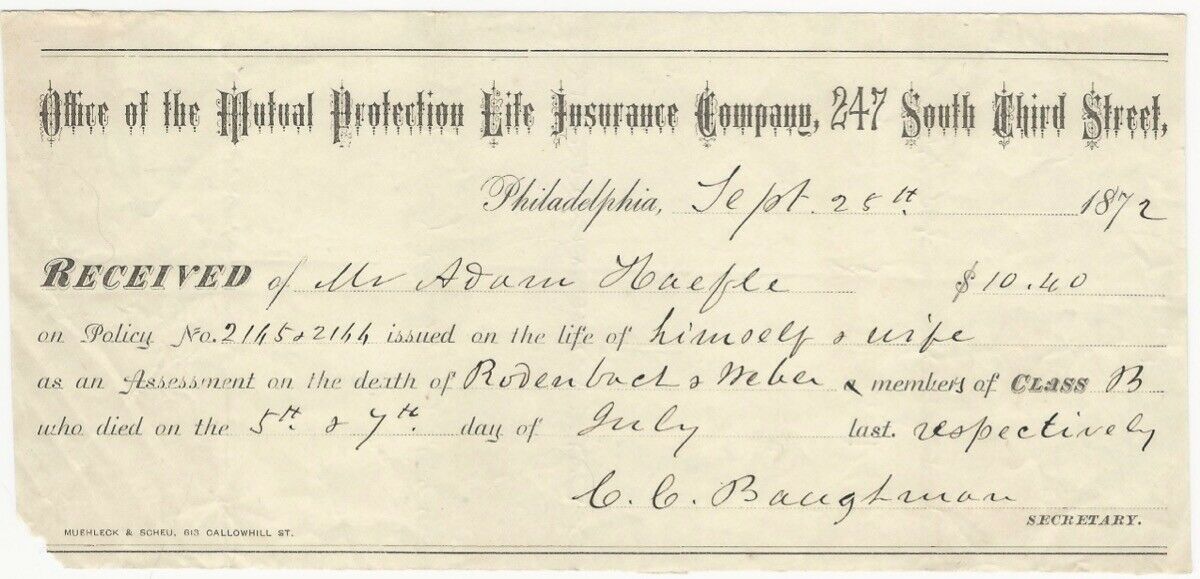 Office of the Mutual Protection Life Insurance Company, 247 South Third Street,
Philadelphia, Sept. 25th. 1872
RECEIVED of Mr Adam Haefle $10.40
on Policy No. 2165 & 2164 issued on the life of himself & wife
as an Assessment on the death of Rodenbach & Weber & members of CLASS B
who died on the 5th. & 7th. day of July last. respectively
C. C. Baughman
SECRETARY.
MUEHLECK & SCHEU, 613 CALLOWHILL ST.